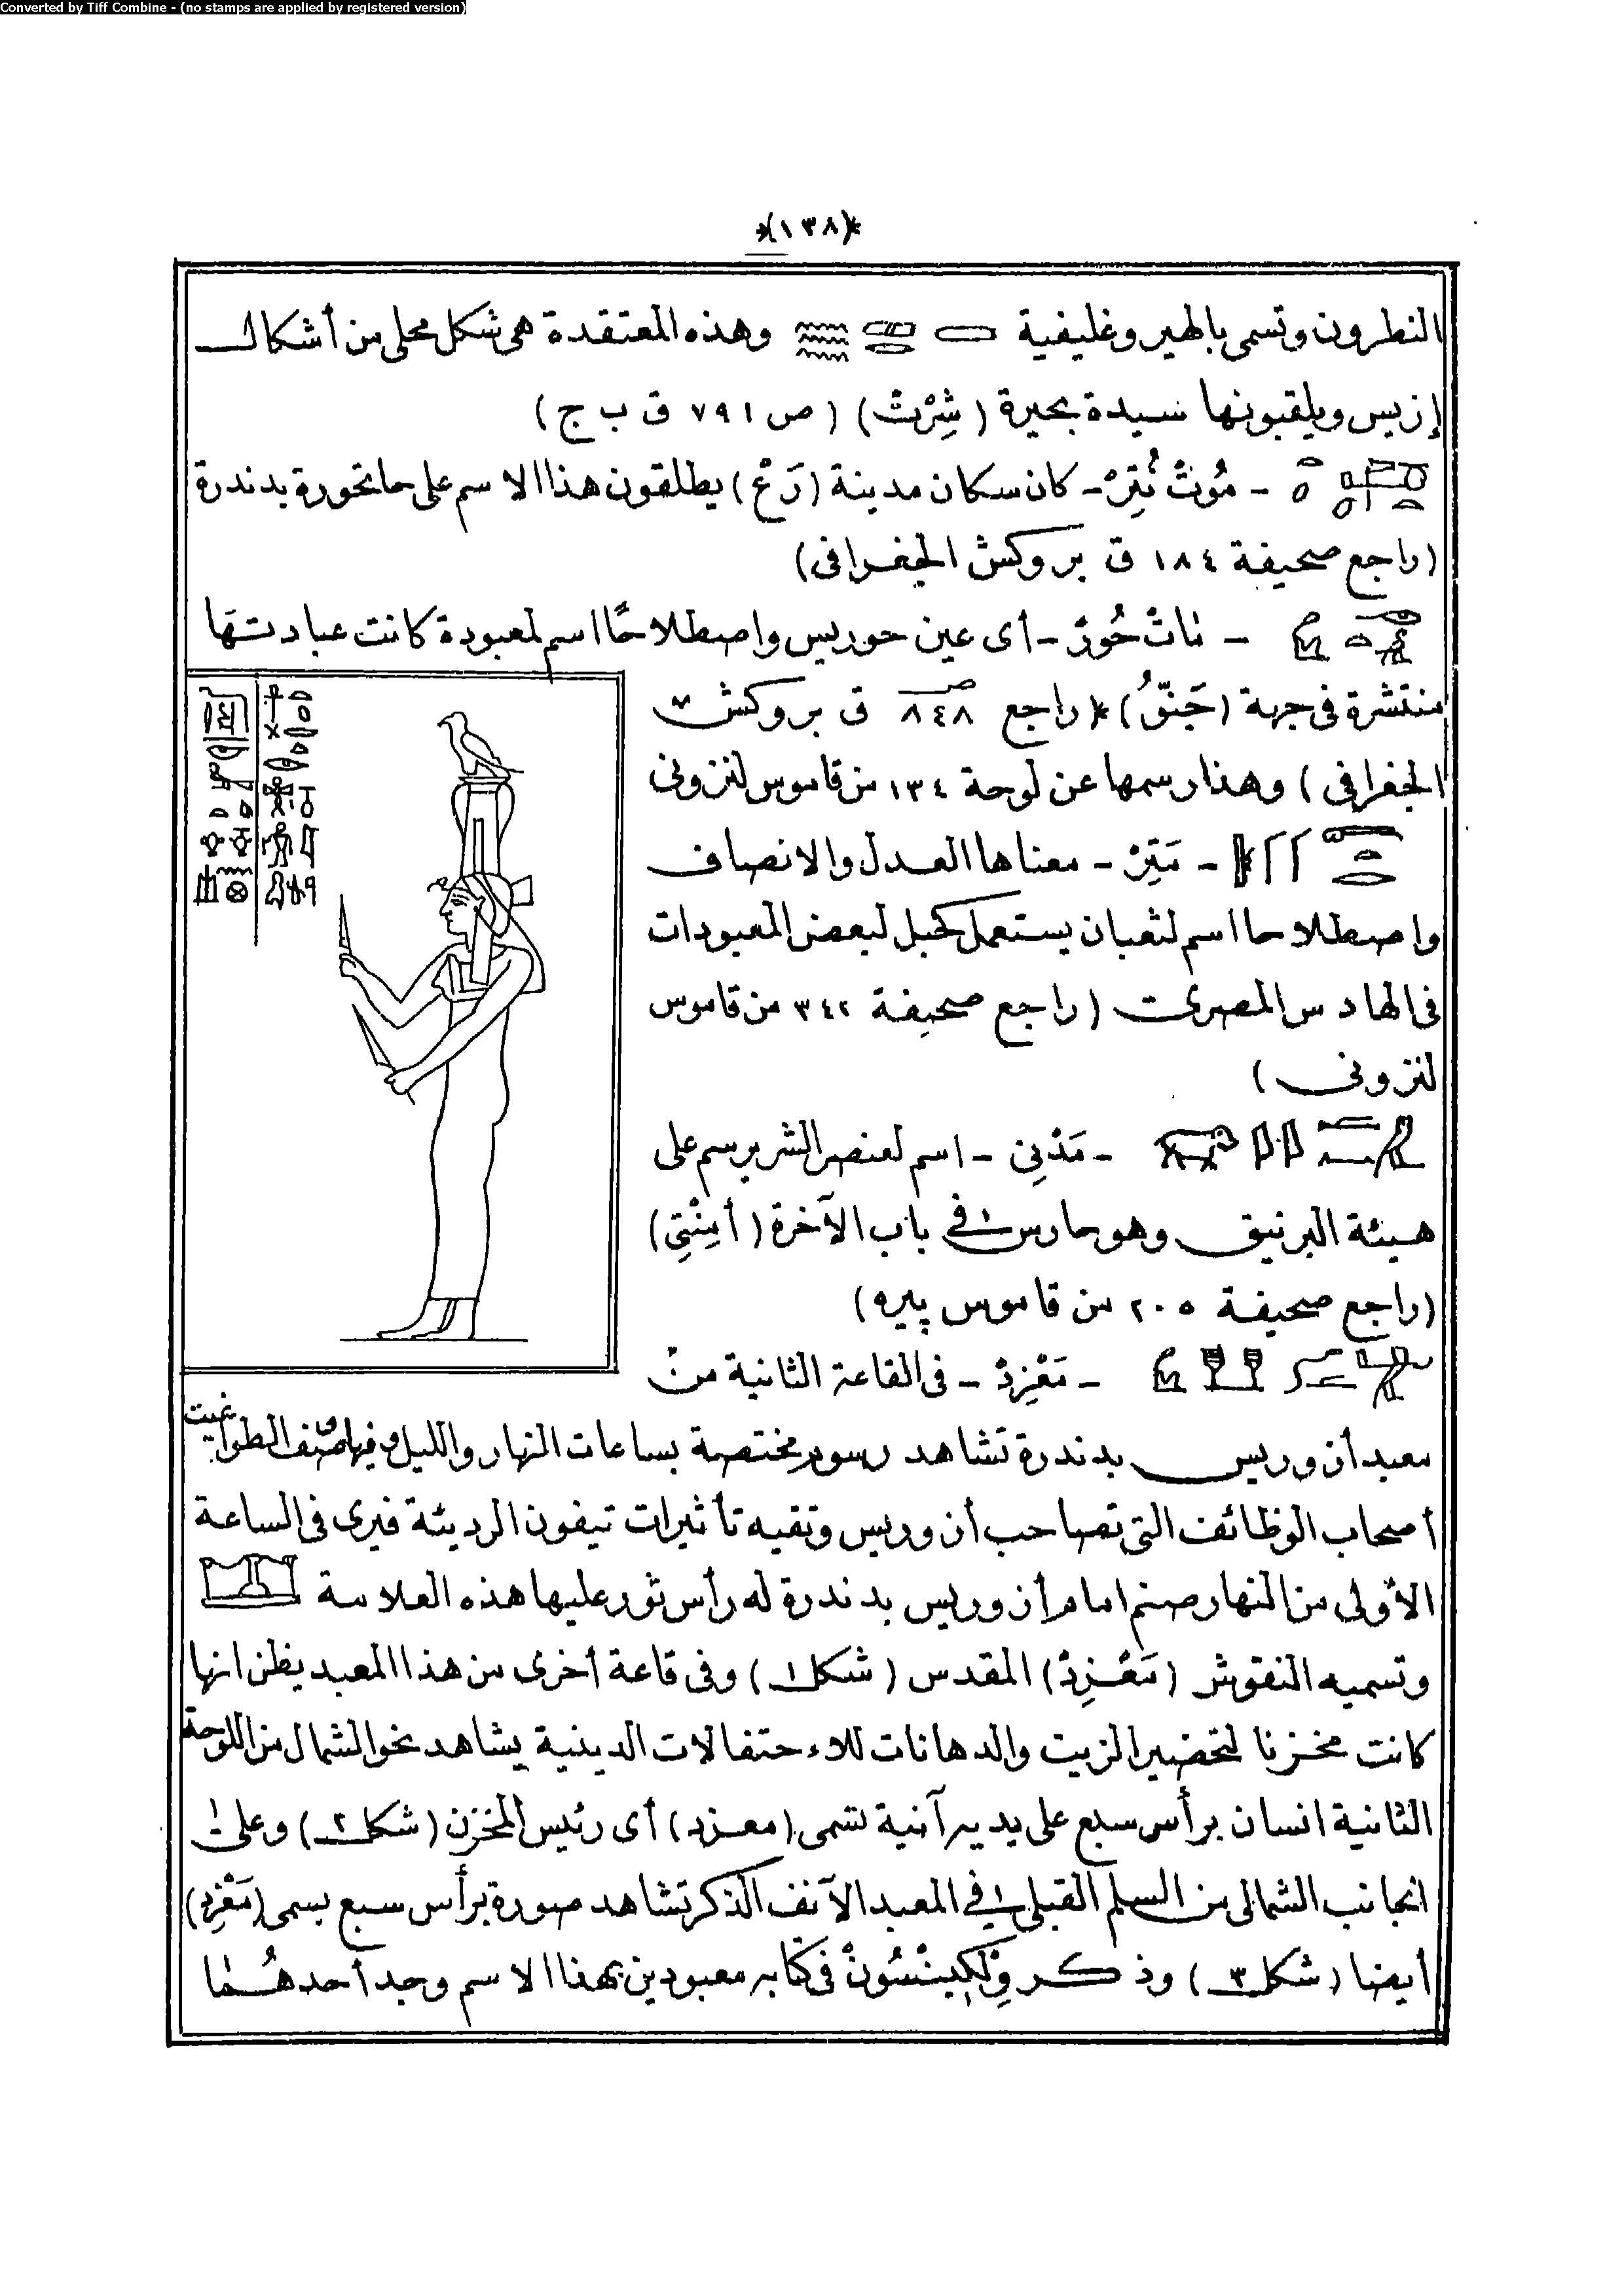 Converted by Tiff Combine - (no stamps are applied by registered version)
*(١٣٨)*
النطرون وتسمى بالهيروغليفية وهذه المعتقدة هى شكل محلى من أشكال
إزيس ويلقبونها سيدة بحيرة (شِرْتْ) (ص ٧٩١ ق ب ج)
- مُوتْ نُتِرْ - كان سكان مدينة (رَعْ) يطلقون هذا الاسم على حاتحورة بدندرة
(راجع صحيفة ١٨٤ ق بروكش الجغرافى)
- ماتْ حُورْ - أى عين حوريس واصطلاحًا اسم لمعبودة كانت عبادتها
منتشرة فى جهة * (راجع صـ ٨٤٨ ق بروكش
الجغرافى) وهذا رسمها عن لوحة ١٣٤ من قاموس لنزونى
- مَتِرْ - معناها العدل والانصاف
واصطلاحا اسم لثعبان يستعمل كحبل لبعض المعبودات
فى الهادس المصرى (راجع صحيفة ٣٤٢ من قاموس
لنزونى)
- مَدْنِى - اسم لعنصر الشر يرسم على
هيئة البرنيق وهو حارس فى باب الآخرة (أمِنْتِى)
(راجع صحيفة ٢٠٥ من قاموس پيره)
- مَعْزِدْ - فى القاعة الثانية من
معبد أن وريس بدندرة تشاهد رسوم مختصة بساعات النهار والليل وفيها صنف الطواغيت
أصحاب الوظائف التى تصاحب أن وريس وتقيه تأثيرات تيفون الرديئة فيرى فى الساعة
الأولى من النهار صنم امام أن وريس بدندرة له رأس ثور عليها هذه العلامة
وتسميه النقوش (مَعْزِدْ) المقدس (شكل ١) وفى قاعة أخرى من هذا المعبد يظن انها
كانت مخزنا لتحضير الزيت والدهانات للاحتفالات الدينية يشاهد نحو الشمال من اللوحة
الثانية انسان برأس سبع على يديه آنية تسمى (معزد) أى رئيس المخزن (شكل ٢) وعلى
الجانب الشمالى من السلم القبلى فى المعبد الآنف الذكر تشاهد صورة برأس سبع يسمى (مَعْزِد)
أيضا (شكل ٣) وذكر وِلْكِينْسُونْ فى كتابه معبودين بهذا الاسم وجد أحدهما